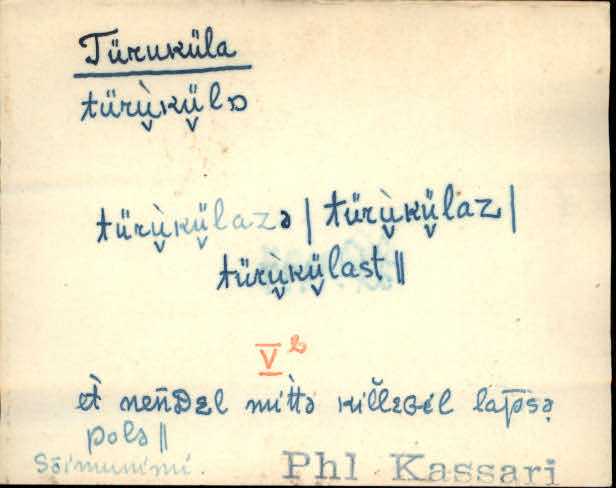 Türuküla
türù̬kü̬lɒ
türù̬kü̬lazə | türù̬kü̬laz |
türù̬kü̬last ||
V²
et̀ nen̄Dɛl mit̀tə kil̆lɛGil lap̄sə̬
polə ||
Sõimunimi.
Phl Kassari